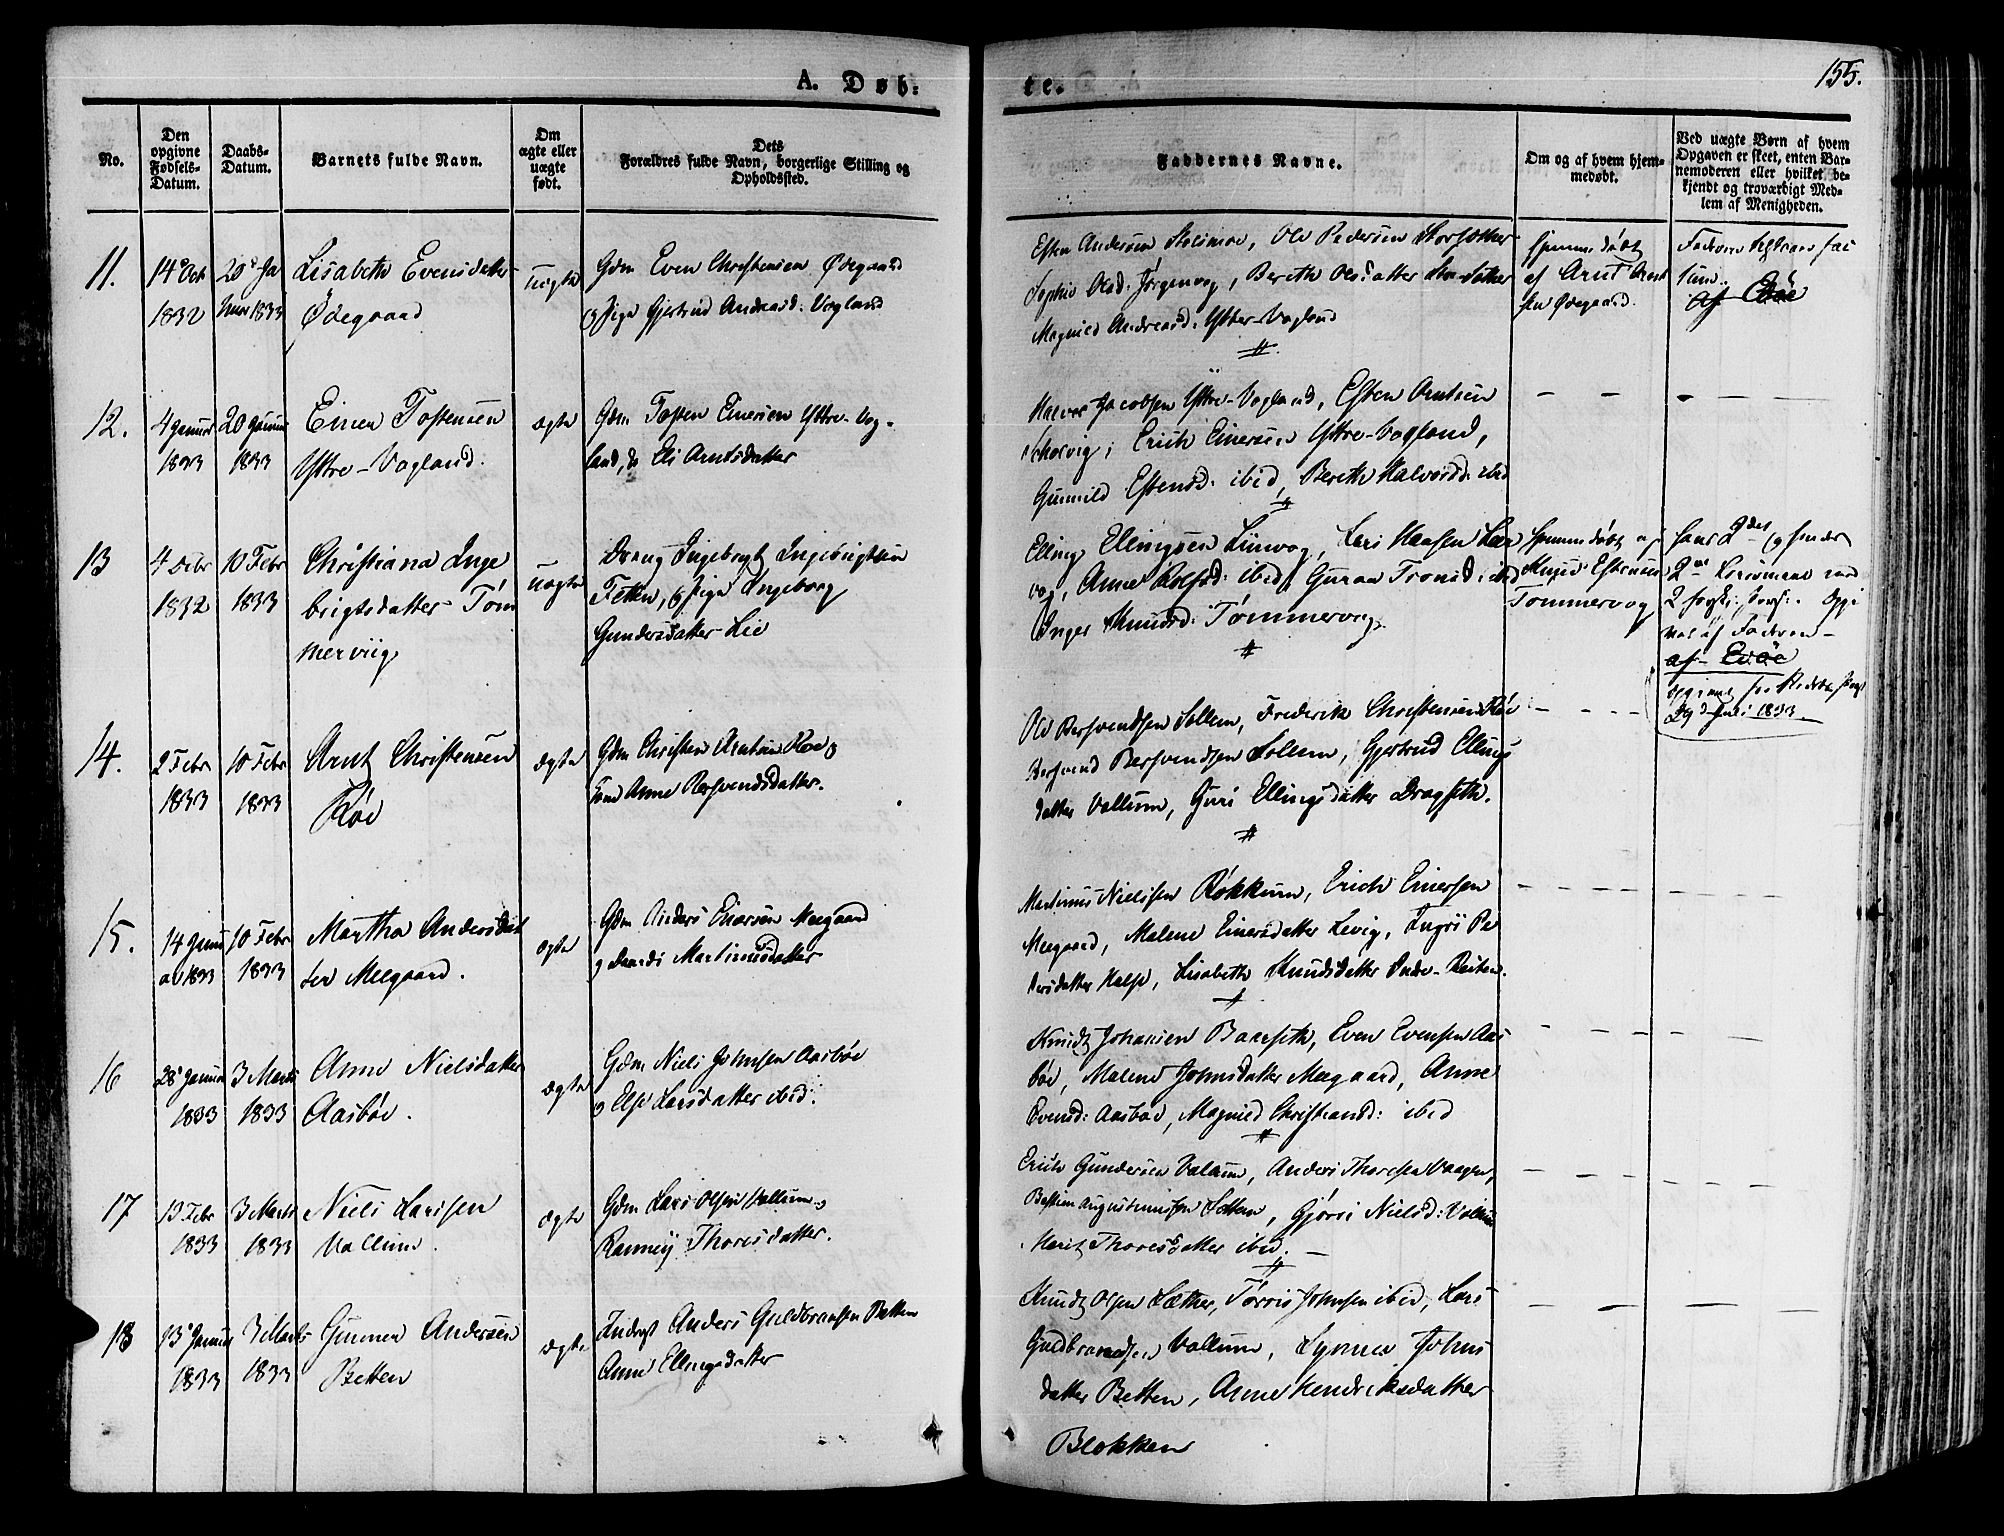 155.
A. Døb-
te.
No.
Den opgivne Fødsels-Datum.
Daabs-Datum.
Barnets fulde Navn.
Om ægte eller uægte født.
Dets Forældres fulde Navn, borgerlige Stilling og Opholdssted.
Faddernes Navne.
Om og af hvem hjemmedøbt.
Ved uægte Børn af hvem Opgaven er skeet, enten Barnemoderen eller hvilket bekjendt og troværdigt Medlem af Menigheden.
11.
14 Oct
1832
20 Ja
nuar 1833
Lisabeth Evensdatter
Ødegaard
uægte
Gdm Even Christensen Ødegaard
og Pige Gjertrud Andreasd: Vagland
Esten Andersen Stolsmoe, Ole Pedersen Storsæther
Sophie Olsd: Jørgenvog, Bereth Olsdatter
Magnild Andreasd: Ytter-Vagland
hjemmedøbt
af Arnt Arnt
sen Ødegaard.
12.
4 Januar
1833
20 Januar
1833
Einer Tostensen
Yttre-Vagland.
ægte
Gdm Tosten Einersen Yttre-Vag-
land, & Eli Arntsdatter
Halvor Jacobsen Yttre-Vagland, Esten Arntsen
Erich Einersen Yttre-Vagland,
Gunnild Estensd: ibid, Bereth Halvorsd: ibid
13
4 Decbr
1832
10 Febr
1833
Christiana Inge
brigtsdatter Tøm
merviig
uægte
Dreng Ingebrigt Ingebrigtsen
Fetten, og Pige Ingeborg
Gundersdatter Lie
Elling Ellingsen Linvog, Lars Hansen Lin
vog, Anne Rolfsd: ibid, Guran Tronsd: ibid
Inger Knudsd: Tømmervog
Hjemmedøbt af
Knud Estensen
Tømmervog
hans 2det og hendes
2det Leiermaal med
2 forskj: Personer. Opgi
vet af Faderen
29 Juni 1833
14.
2 Febr
1833
10 Febr
1833
Arnt Christensen
Røe
ægte
Gdm Christen Arntsen Røe og
Kone Anne Bersvendsdatter.
Ole Bersvendsen Sollem, Frederik Christensen Røe
Bersvend Bersvendsen Sollem, Gjertrud Ellings
datter Vallum, Guri Ellingsdatter Dragseth.
15.
14 Janu
ar 1833
10 Febr
1833
Martha Andersdat
ter Meegaard.
ægte
Gdm Anders Einersen Meegaard
og Martinusdatter
Martinus Nielssen Røkkum, Erich Einersen
Meegaard, Malene Einersdatter Levig, Ingri Pe
dersdatter Halse, Lisabeth Knudsdatter Indre-Reiten.
16
28 Januar
1833
3 Marts
1833
Anne Nielsdatter
Aasbøe.
ægte
Gdm Niels Johnsen Aasbøe
og Else Larsdatter ibid.
Knudt Johansen Baeseth, Even Evensen Aas
bøe, Malene Johnsdatter Meegaard, Anne
Evensd: Aasbøe, Magnild Christiansd: ibid
17
13 Febr
1833
3 Marts
1833
Niels Larssen
Vallum.
ægte
Gdm Lars Olsen Vallum og
Ranney Thoresdatter.
Erich Gundersen Valum, Anders Thoresen Vaagen,
Bastien Augustinussen Gjøri Nielsd: Valum
Marit Thoresdatter ibid.
18
13 Januar
1833
3 Marts
1833
Gunner Andersen
Betten
ægte
Inderst Anders Guldbransen Betten
Anne Ellingsdatter
Knudt Olsen Sæther, Tørris Johnsen ibid, Lars
Guldbrandsen Vallum, Johns
datter Betten, Anne Hendriksdatter
Blokken